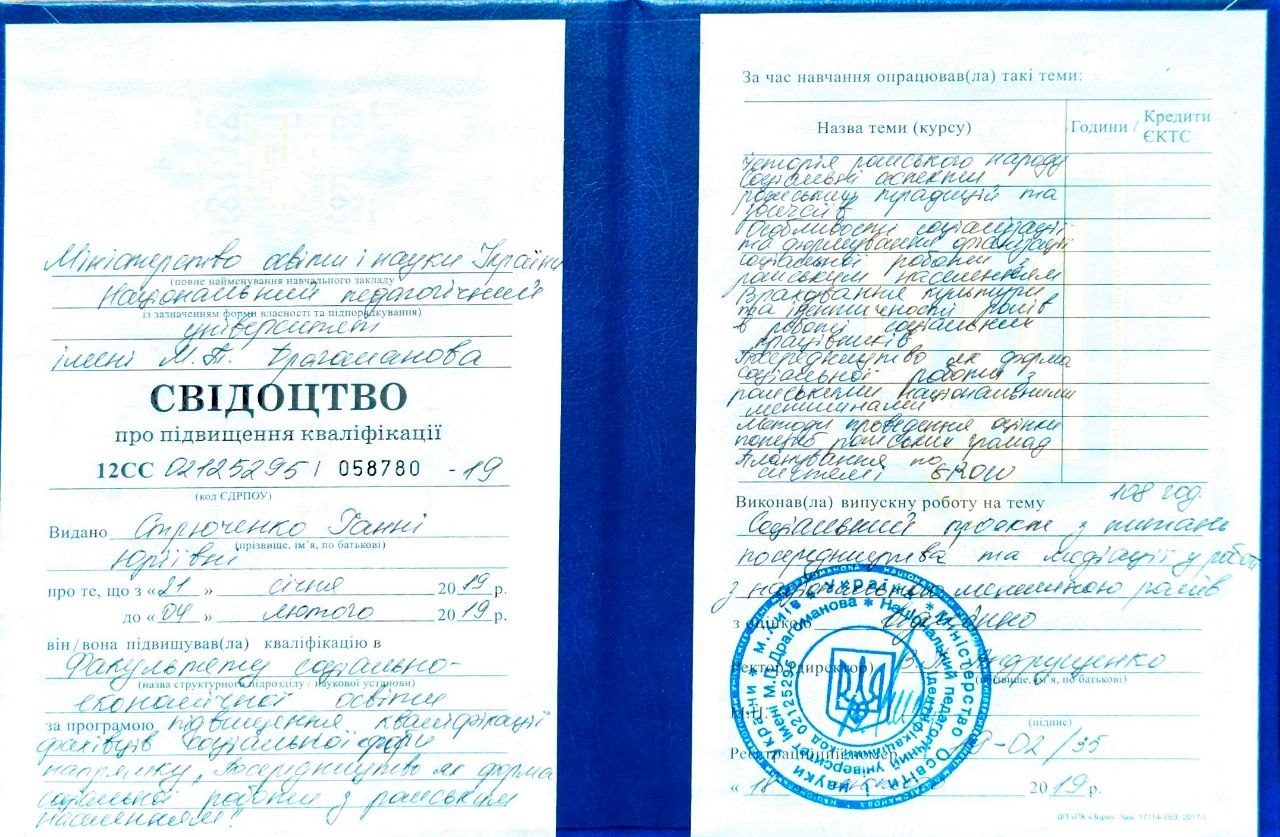 Міністерство освіти і науки України
(повне найменування навчального закладу
Національний педагогічний
із зазначенням форми власності та підпорядкування)
університет
імені М.П. Драгоманова
СВІДОЦТВО
про підвищення кваліфікації
12СС 02125295 / 058780 -19
(код ЄДРПОУ)
Видано Стрюченко Ганні
(прізвище, ім'я, по батькові)
Юріївні
про те, що з «21» січня 2019 р.
до «04» лютого 2019 р.
він/вона підвищував(ла) кваліфікацію в
Факультету соціально-
(назва структурного підрозділу / наукової установи)
економічної освіти
за програмою підвищення кваліфікації
фахівців соціальної сфери
напрямку „Посередництво як форма
соціальної роботи з ромським
населенням"
За час навчання опрацював(ла) такі теми:
Назва теми (курсу)
Години / Кредити ЄКТС
Історія ромського народу
Соціальні аспекти
ромських традицій та
звичаїв
Особливості соціалізації
та формування організації
соціальної роботи з
ромським населенням
Врахування культури
та ідентичності ромів
в роботі соціальних
працівників
Посередництво як форма
соціальної роботи з
ромськими національними
меншинами
Методи проведення оцінки
потреб ромських громад
Планування по
системі GROW
108 год.
Виконав(ла) випускну роботу на тему
Соціальний проект з питань
посередництва та медіації у роботі
з національною меншиною ромів
з оцінкою відмінно
Ректор (директор) В.П. Андрущенко
(прізвище, ім'я, по батькові)
М.П.
(підпис)
Реєстраційний номер -02/35
«18» 2019 р.
Україна * Міністерство освіти і науки України * м. Київ *
Національний педагогічний університет імені М.П.Драгоманова *
Ідентифікаційний код 02125295
ДП «ПК «Зоря». Зам. 17114-УБЗ. 2017 І.